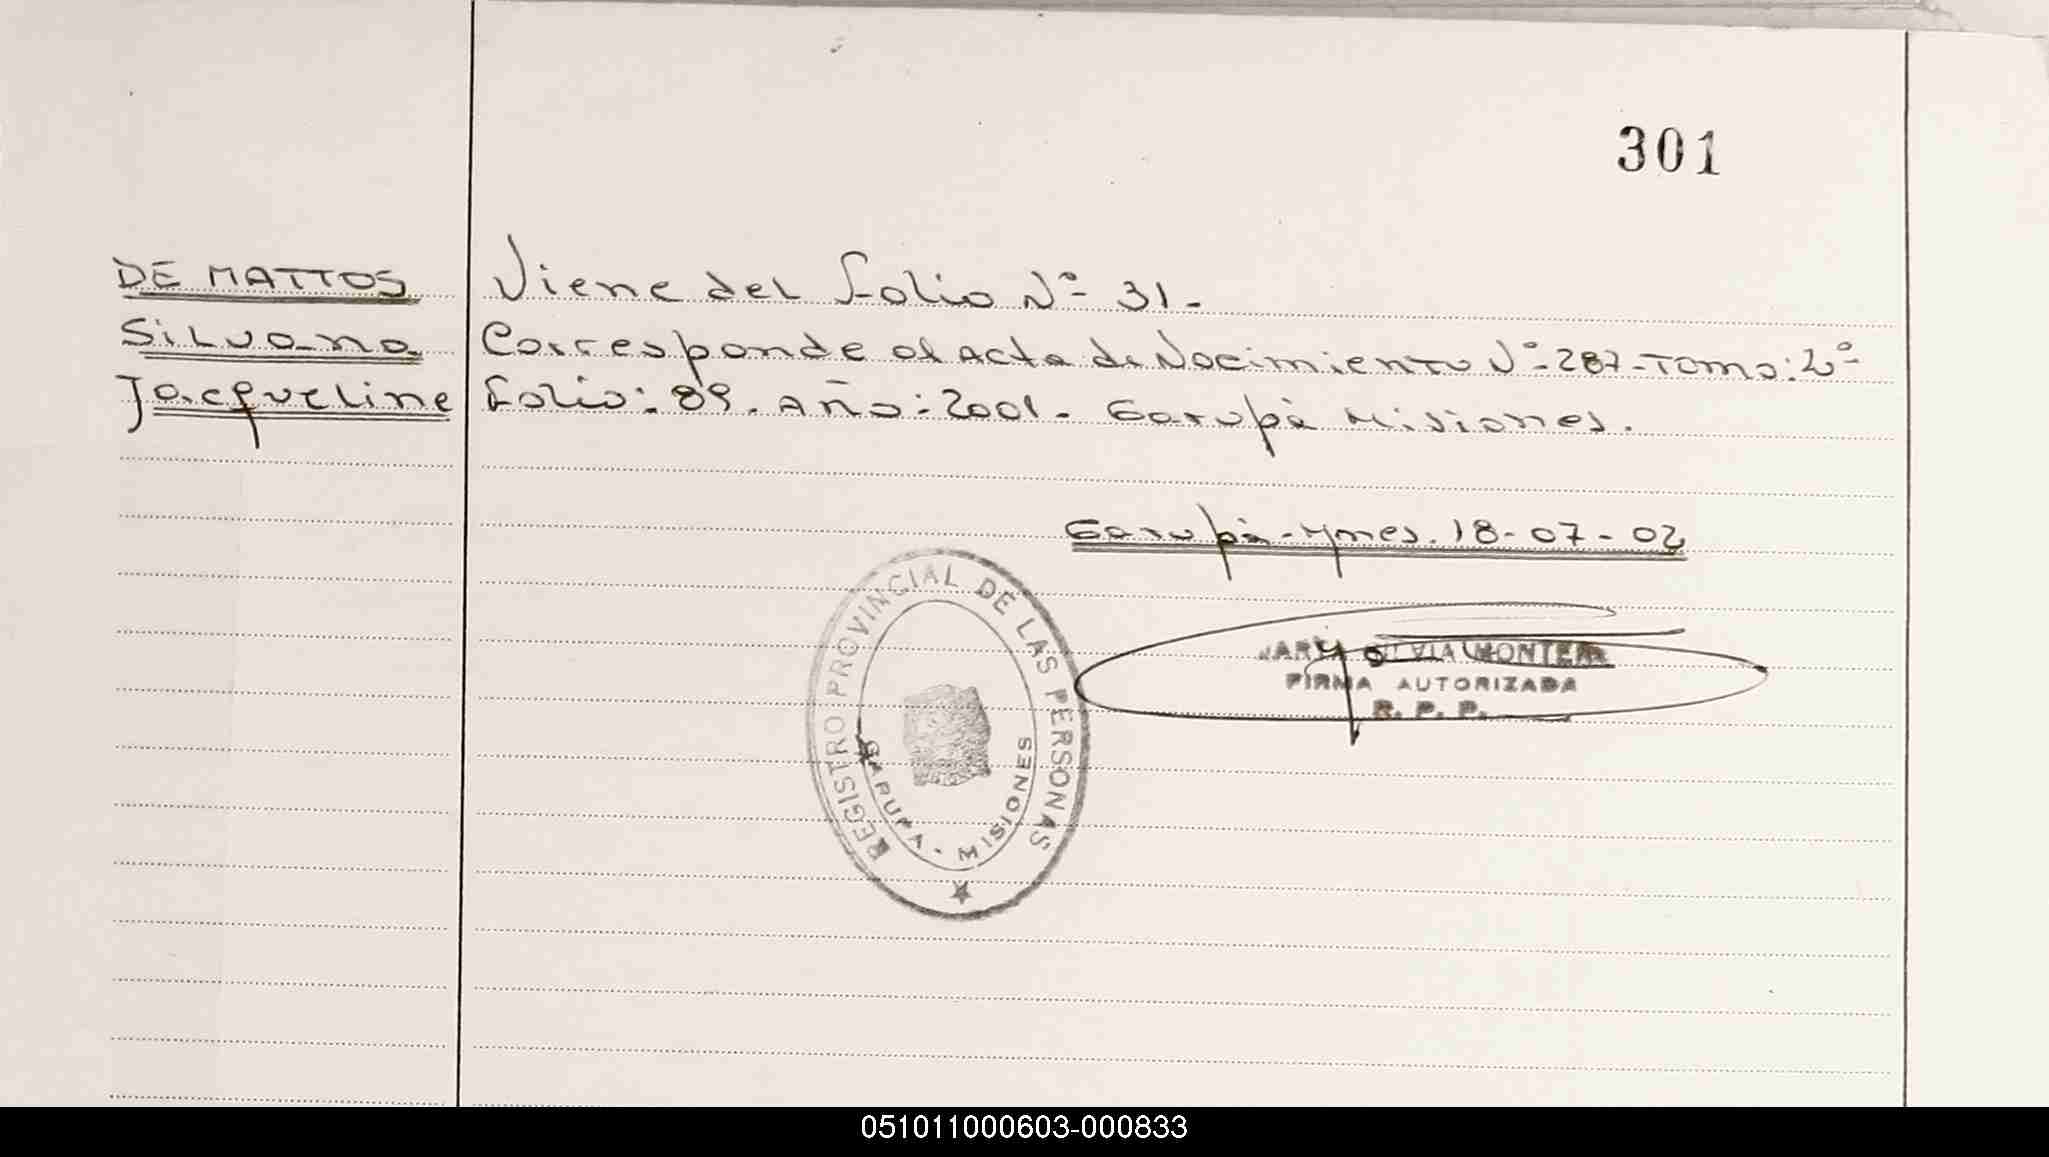 301
DE MATTOS
Silvana
Jacqueline
Viene del Folio Nº 31.
Corresponde al Acta de Nacimiento Nº 287 - Tomo: 2º
Folio: 89. Año: 2001. Garupá Misiones.
Garupá - Mnes. 18-07-02
REGISTRO PROVINCIAL DE LAS PERSONAS
GARUPA - MISIONES
SILVIA
FIRMA AUTORIZADA
R. P. P.
051011000603-000833